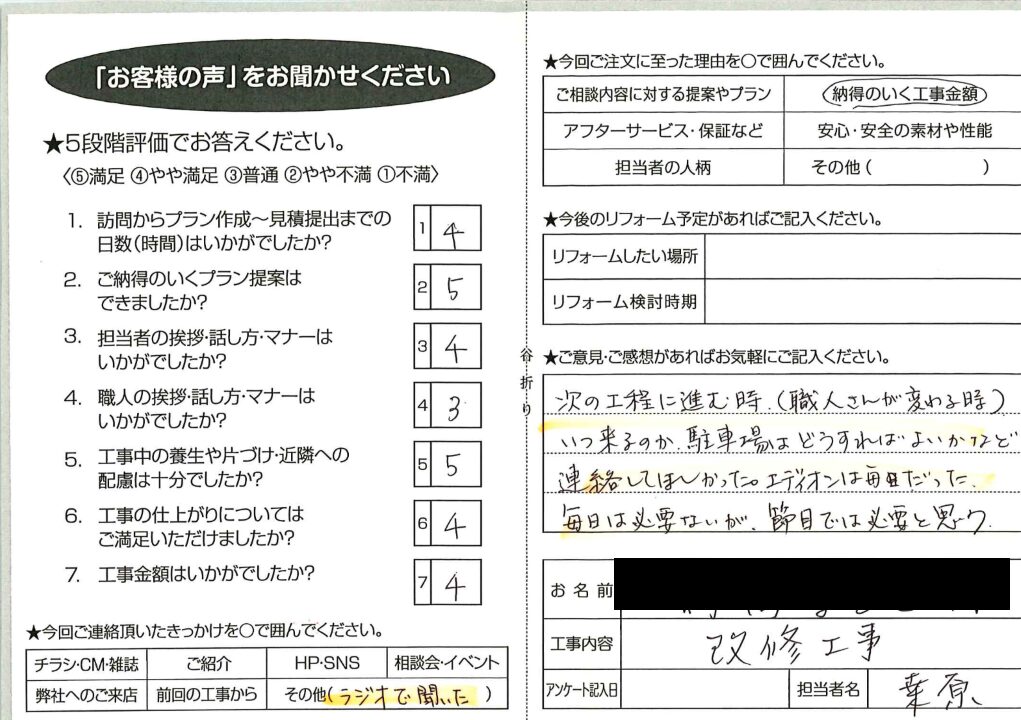 「お客様の声」をお聞かせください
★5段階評価でお答えください。
〈⑤満足 ④やや満足 ③普通 ②やや不満 ①不満〉
1. 訪問からプラン作成～見積提出までの
日数(時間)はいかがでしたか?
1 4
2. ご納得のいくプラン提案は
できましたか?
2 5
3. 担当者の挨拶・話し方・マナーは
いかがでしたか?
3 4
4. 職人の挨拶・話し方・マナーは
いかがでしたか?
4 3
5. 工事中の養生や片づけ・近隣への
配慮は十分でしたか?
5 5
6. 工事の仕上がりについては
ご満足いただけましたか?
6 4
7. 工事金額はいかがでしたか?
7 4
★今回ご連絡頂いたきっかけを〇で囲んでください。
チラシ・CM・雑誌 ご紹介 HP・SNS 相談会・イベント
弊社へのご来店 前回の工事から その他(ラジオで聞いた)
谷折り
★今回ご注文に至った理由を〇で囲んでください。
ご相談内容に対する提案やプラン 納得のいく工事金額
アフターサービス・保証など 安心・安全の素材や性能
担当者の人柄 その他( )
★今後のリフォーム予定があればご記入ください。
リフォームしたい場所
リフォーム検討時期
★ご意見・ご感想があればお気軽にご記入ください。
次の工程に進む時、(職人さんが変わる時)
いつ来るのか、駐車場はどうすればよいかなど
連絡してほしかった。エディオンは毎日だった。
毎日は必要ないが、節目では必要と思う。
お名前
工事内容 改修工事
アンケート記入日 担当者名 葉原